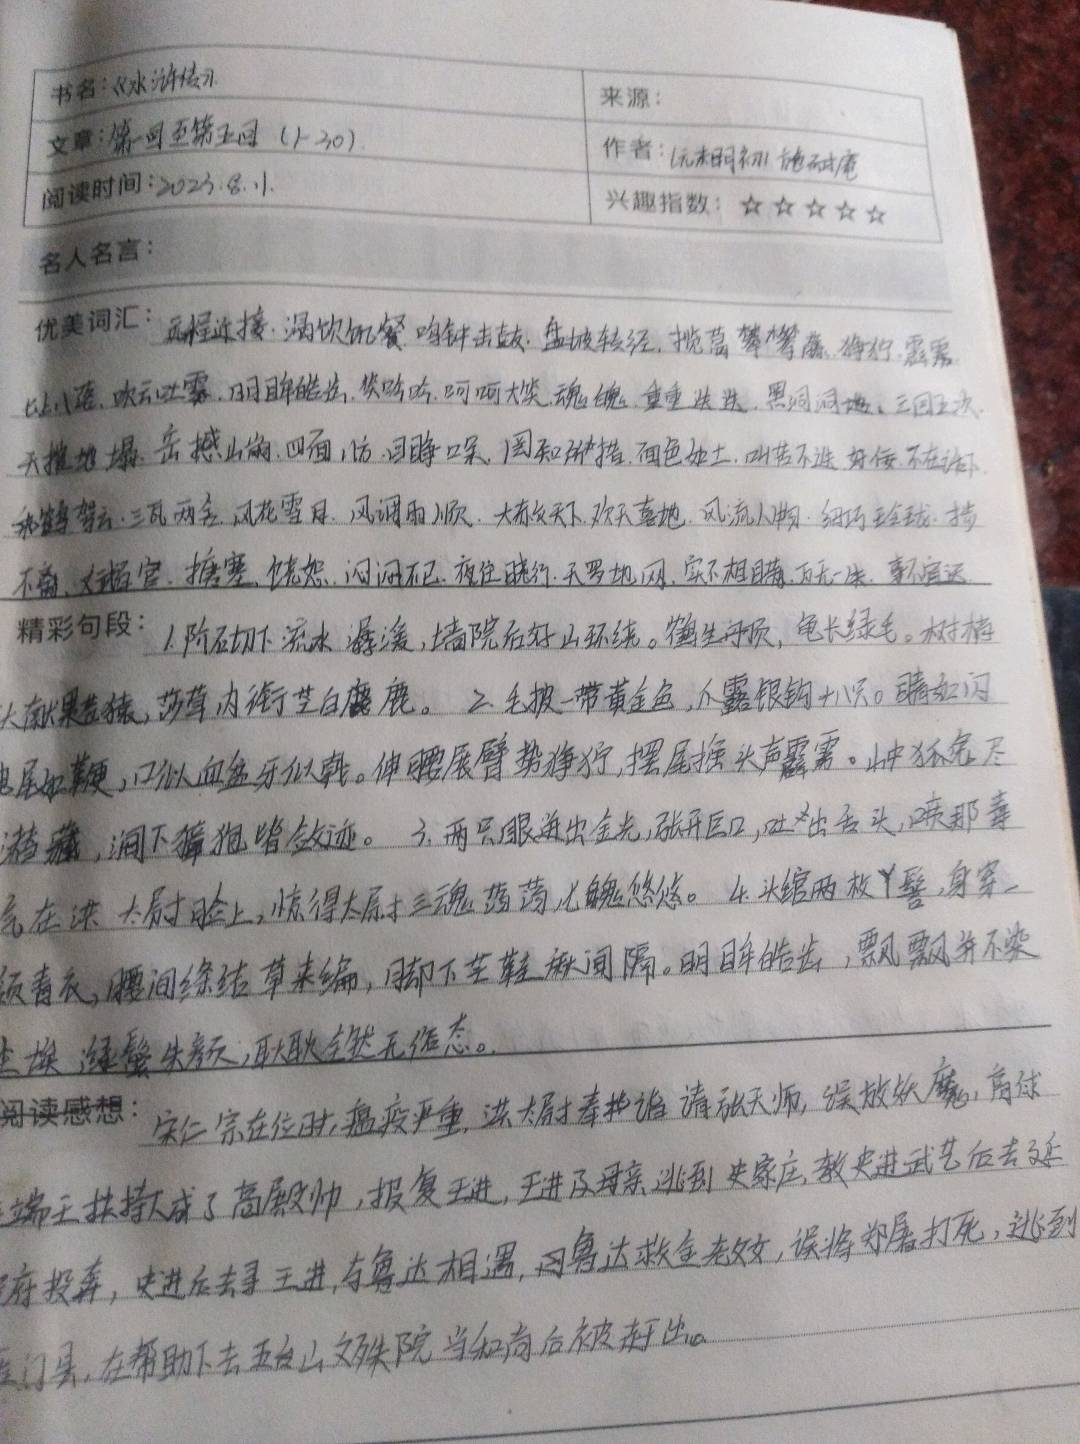 书名：《水浒传》
来源：
文章：第一回至第五回（1-30）
作者：元末明初 施耐庵
阅读时间：2023.8.1.
兴趣指数：☆☆☆☆☆
名人名言：
优美词汇：远程近接.渴饮饥餐 鸣钟击鼓.盘坡转径.揽葛攀藤.狰狞.霹雳
七上八落.吹云吐雾.明眸皓齿.笑吟吟.呵呵大笑.魂魄.重重叠叠.黑洞洞地.三回五次.
天摧地塌.岳撼山崩.四面八方.目睁口呆.罔知所措.面色如土.叫苦不迭.好佞.不在话下
乘鹤驾云.三瓦两舍.风花雪月.风调雨顺.大赦天下.欢天喜地.风流人物.
不离. 搪塞.饶恕.闷闷不已.夜住晓行.天罗地网.实不相瞒.万无一失.事不宜迟
精彩句段：1.阶砌下流水潺湲，墙院后好山环绕。鹤生丹顶，龟长绿毛。树梢
头献果苍猿，莎草内衔芝白鹿。 2.毛披一带黄金色，爪露银钩十八只。睛如闪
电尾如鞭，口似血盆牙似戟。伸腰展臂势狰狞，摆尾摇头声霹雳。山中狐兔尽
潜藏，涧下獐狍皆敛迹。 3.两只眼迸出金光，张开巨口，吐出舌头，喷那毒
气在洪太尉脸上，惊得太尉三魂荡荡，七魄悠悠。 4.头绾两枚丫髻，身穿一
领青衣，腰间绦结草来编，脚下芒鞋麻间隔。明眸皓齿，飘飘并不染
尘埃 绿鬓朱颜，耿耿全然无俗态。
阅读感想：宋仁宗在位时，瘟疫严重，洪太尉奉 请张天师，误放妖魔，高俅
 端王扶持成了高殿帅，报复王进，王进及母亲逃到史家庄，教史进武艺后去延
安府投奔，史进后去寻王进，与鲁达相遇，因鲁达救金老父女，误将郑屠打死，逃到
雁门县，在帮助下去五台山文殊院当和尚后被赶出。